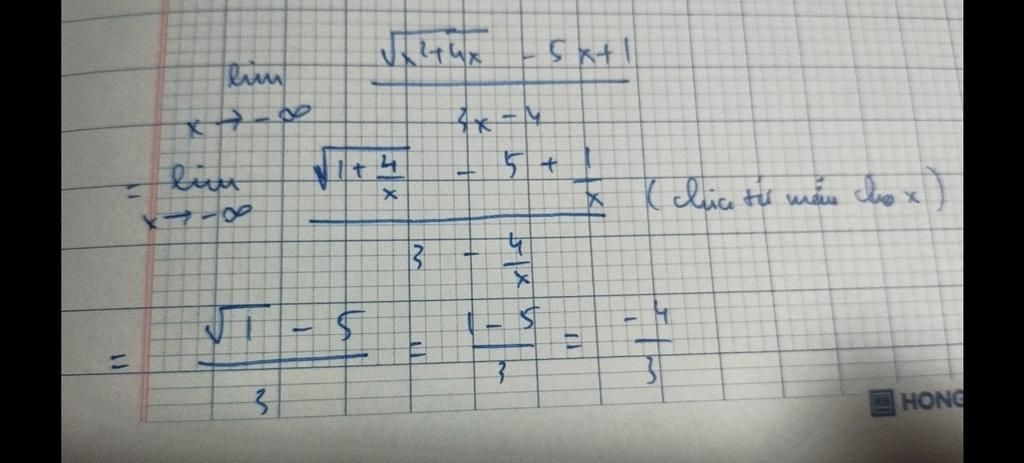 lim x→-∞ (√(x²+4x) - 5x+1)/(3x-4)
= lim x→-∞ (√(1+4/x) - 5 + 1/x)/(3 - 4/x) (chia tử mẫu cho x)
= (√1 - 5)/3 = (1-5)/3 = -4/3
HONG